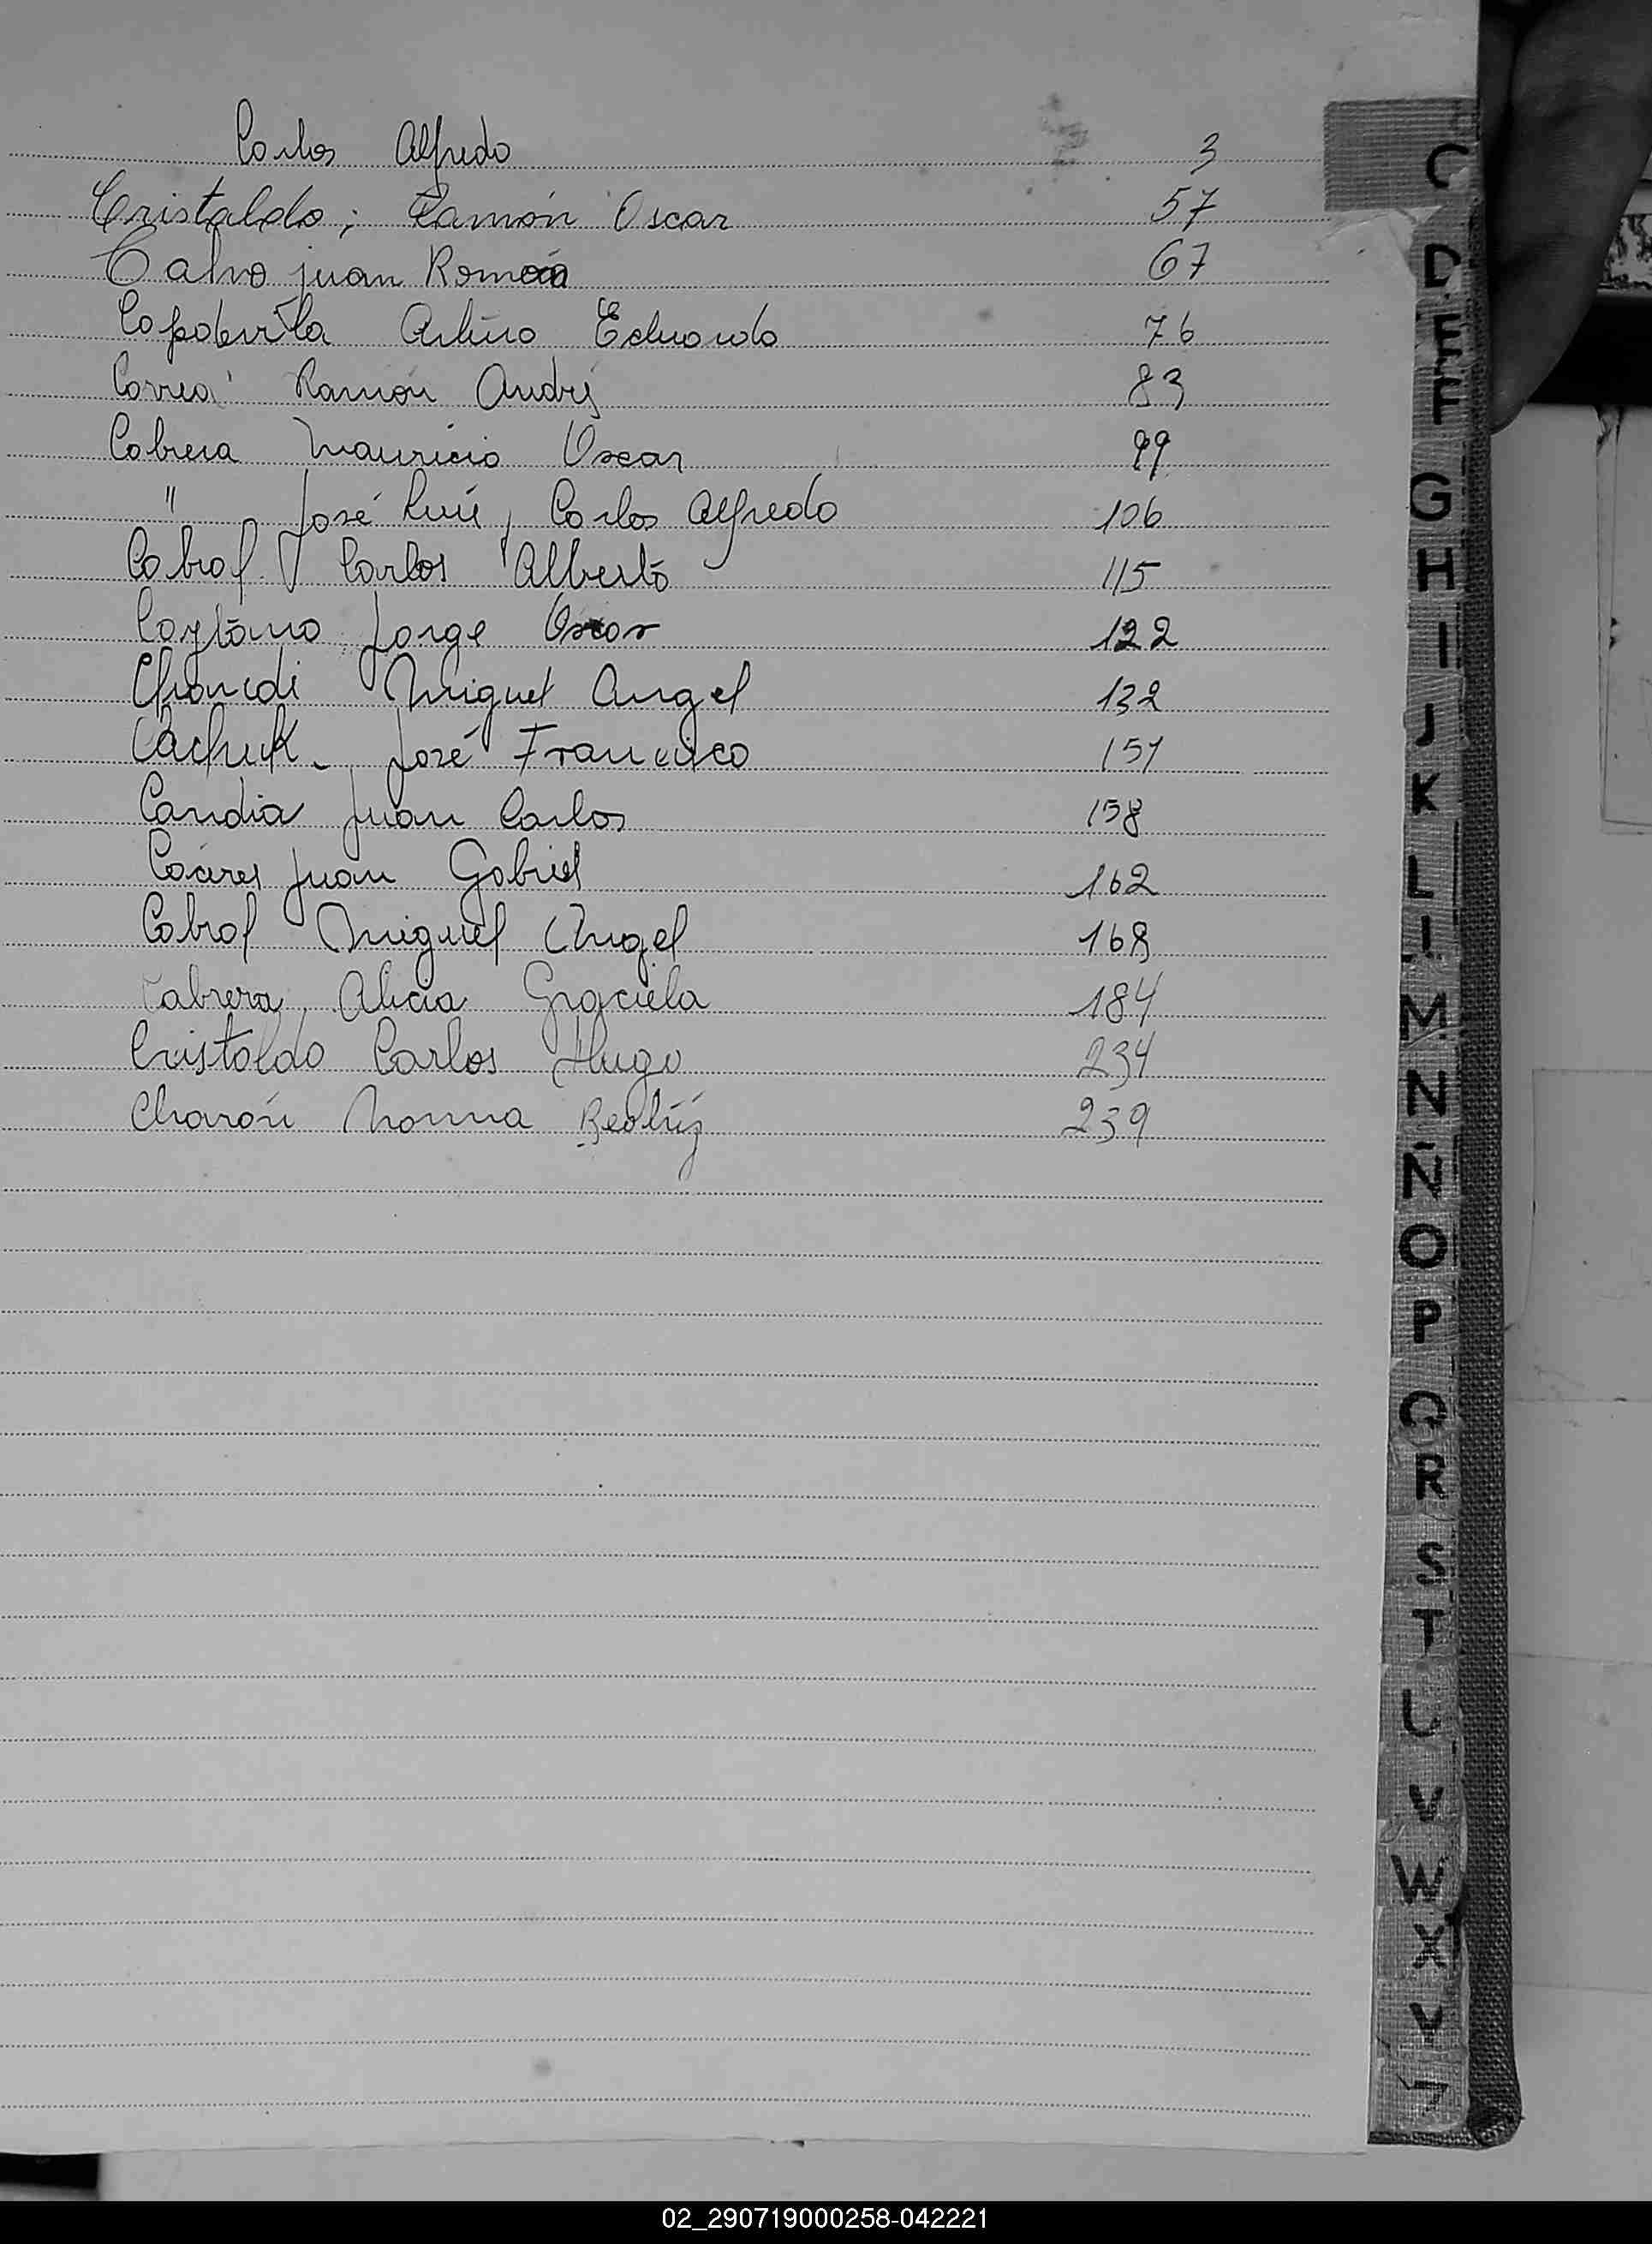 Carlos Alfredo 3
Cristaldo; Ramón Oscar 57
Calvo juan Román 67
Capdevila Arturo Eduardo 76
Correa Ramón Andrés 83
Cabrera Mauricio Oscar 99
" José Luis, Carlos Alfredo 106
Cabral Carlos Alberto 115
Jorge Oscar 122
Miguel Angel 132
Cachuk - José Francisco 151
Candia Juan Carlos 158
Juan Gabriel 162
Cabral Miguel Angel 168
Cabrera, Alicia Graciela 184
Cristaldo Carlos Hugo 234
Norma Beatríz 239
C
D
E
F
G
H
I
J
K
L
M
N
Ñ
O
P
Q
R
S
T
U
V
W
X
Y
02_290719000258-042221